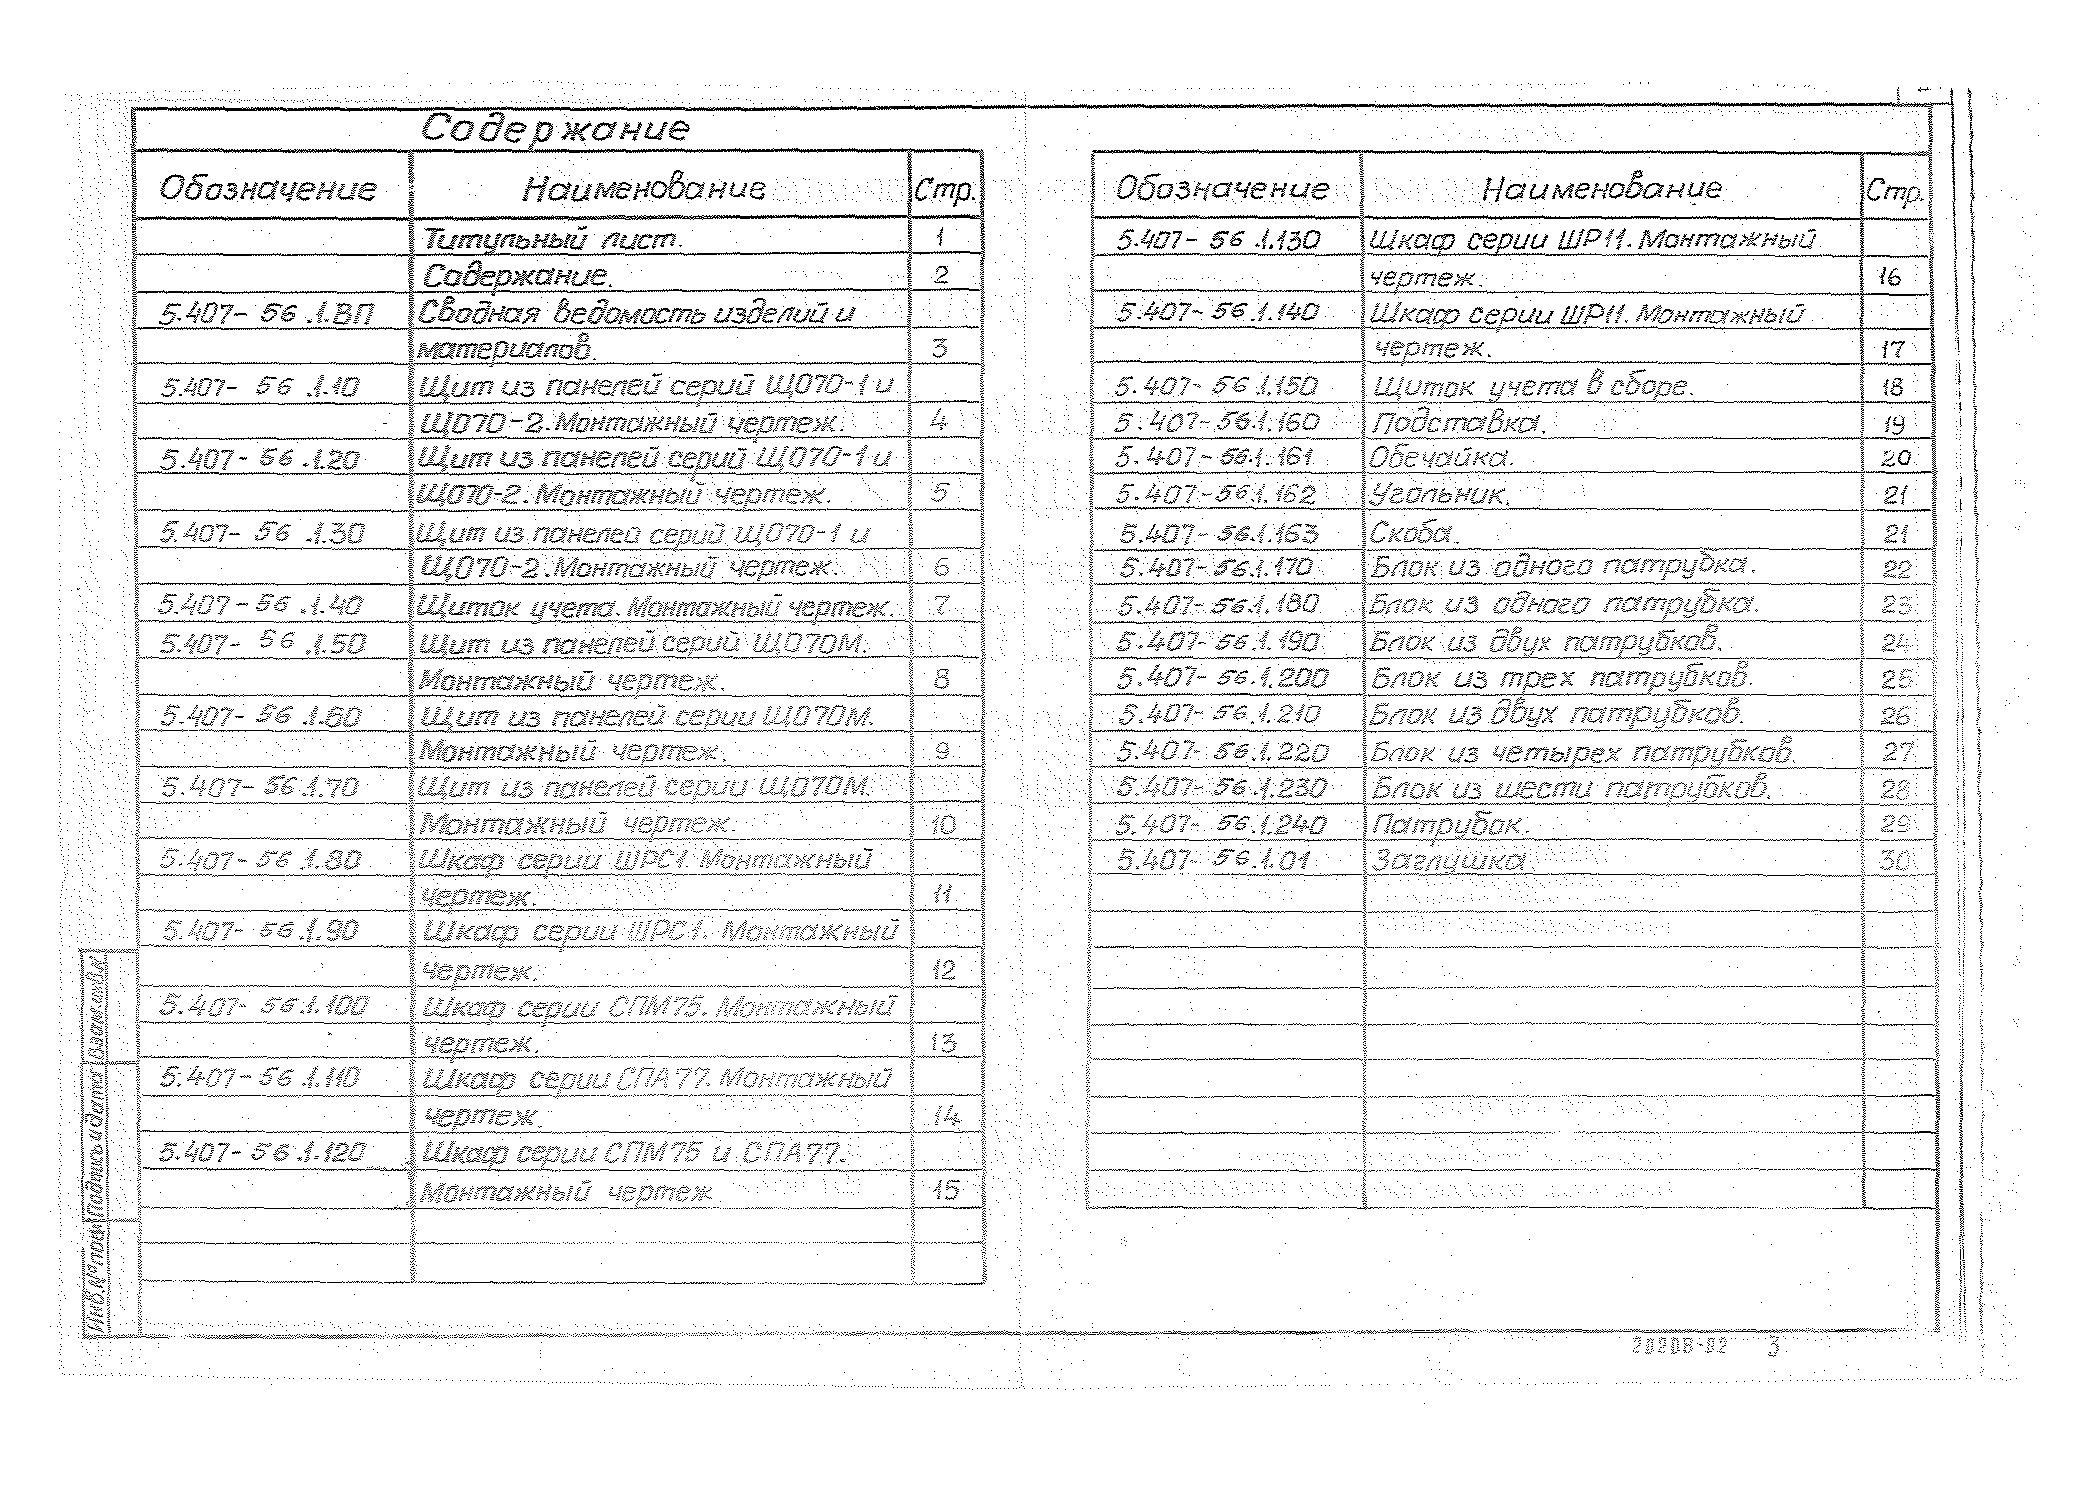 Содержание
Обозначение Наименование Стр.
Титульный лист. 1
Содержание. 2
5.407-56.1.ВП Сводная ведомость изделий и
материалов. 3
5.407-56.1.10 Щит из панелей серий ЩО70-1 и
ЩО70-2. Монтажный чертеж. 4
5.407-56.1.20 Щит из панелей серий ЩО70-1 и
ЩО70-2. Монтажный чертеж. 5
5.407-56.1.30 Щит из панелей серий ЩО70-1 и
ЩО70-2. Монтажный чертеж. 6
5.407-56.1.40 Щиток учета. Монтажный чертеж. 7
5.407-56.1.50 Щит из панелей серий ЩО70М.
Монтажный чертеж. 8
5.407-56.1.60 Щит из панелей серии ЩО70М.
Монтажный чертеж. 9
5.407-56.1.70 Щит из панелей серии ЩО70М.
Монтажный чертеж. 10
5.407-56.1.80 Шкаф серии ШРС1. Монтажный
чертеж. 11
5.407-56.1.90 Шкаф серии ШРС1. Монтажный
чертеж. 12
5.407-56.1.100 Шкаф серии СПМ75. Монтажный
чертеж. 13
5.407-56.1.110 Шкаф серии СПА77. Монтажный
чертеж. 14
5.407-56.1.120 Шкаф серии СПМ75 и СПА77.
Монтажный чертеж 15
Обозначение Наименование Стр.
5.407-56.1.130 Шкаф серии ШР11. Монтажный
чертеж. 16
5.407-56.1.140 Шкаф серии ШР11. Монтажный
чертеж. 17
5.407-56.1.150 Щиток учета в сборе. 18
5.407-56.1.160 Подставка. 19
5.407-56.1.161 Обечайка. 20
5.407-56.1.162 Угольник. 21
5.407-56.1.163 Скоба. 21
5.407-56.1.170 Блок из одного патрубка. 22
5.407-56.1.180 Блок из одного патрубка. 23
5.407-56.1.190 Блок из двух патрубков. 24
5.407-56.1.200 Блок из трех патрубков. 25
5.407-56.1.210 Блок из двух патрубков. 26
5.407-56.1.220 Блок из четырех патрубков. 27
5.407-56.1.230 Блок из шести патрубков. 28
5.407-56.1.240 Патрубок. 29
5.407-56.1.01 Заглушка. 30
Инв.№ подл Подпись и дата Взам.инв.№
20208-02 3